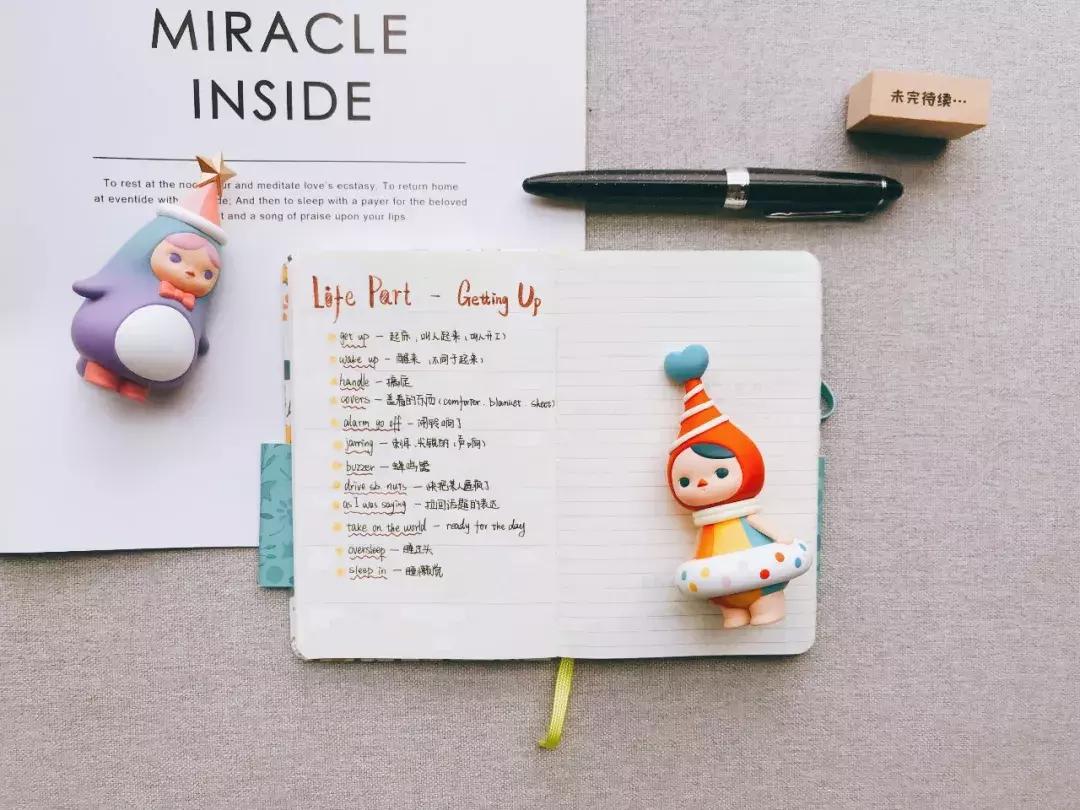 MIRACLE
INSIDE
To rest at the ur and meditate love's ecstasy. To return home
at eventide with de; And then to sleep with a payer for the beloved
t and a song of praise upon your lips
未完待续…
Life Part - Getting Up
get up - 起床, 叫人起来, 叫人开工)
wake up - 醒来 (不同于起来)
handle - 搞定
covers - 盖着的东西 (comforter. blanket. sheet)
alarm go off - 闹铃响了
jarring - 刺耳、尖锐的 (声响)
buzzer - 蜂鸣器
drive sb. nuts - 快把某人逼疯了
as I was saying - 拉回话题的表达
take on the world - ready for the day
oversleep - 睡过头
sleep in - 睡懒觉